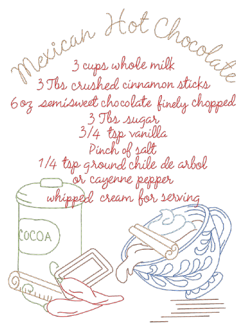 Mexican Hot Chocolate
3 cups whole milk
3 Tbs crushed cinnamon sticks
6 oz semisweet chocolate finely chopped
3 Tbs sugar
3/4 tsp vanilla
Pinch of salt
1/4 tsp ground chile de arbol
or cayenne pepper
whipped cream for serving
COCOA